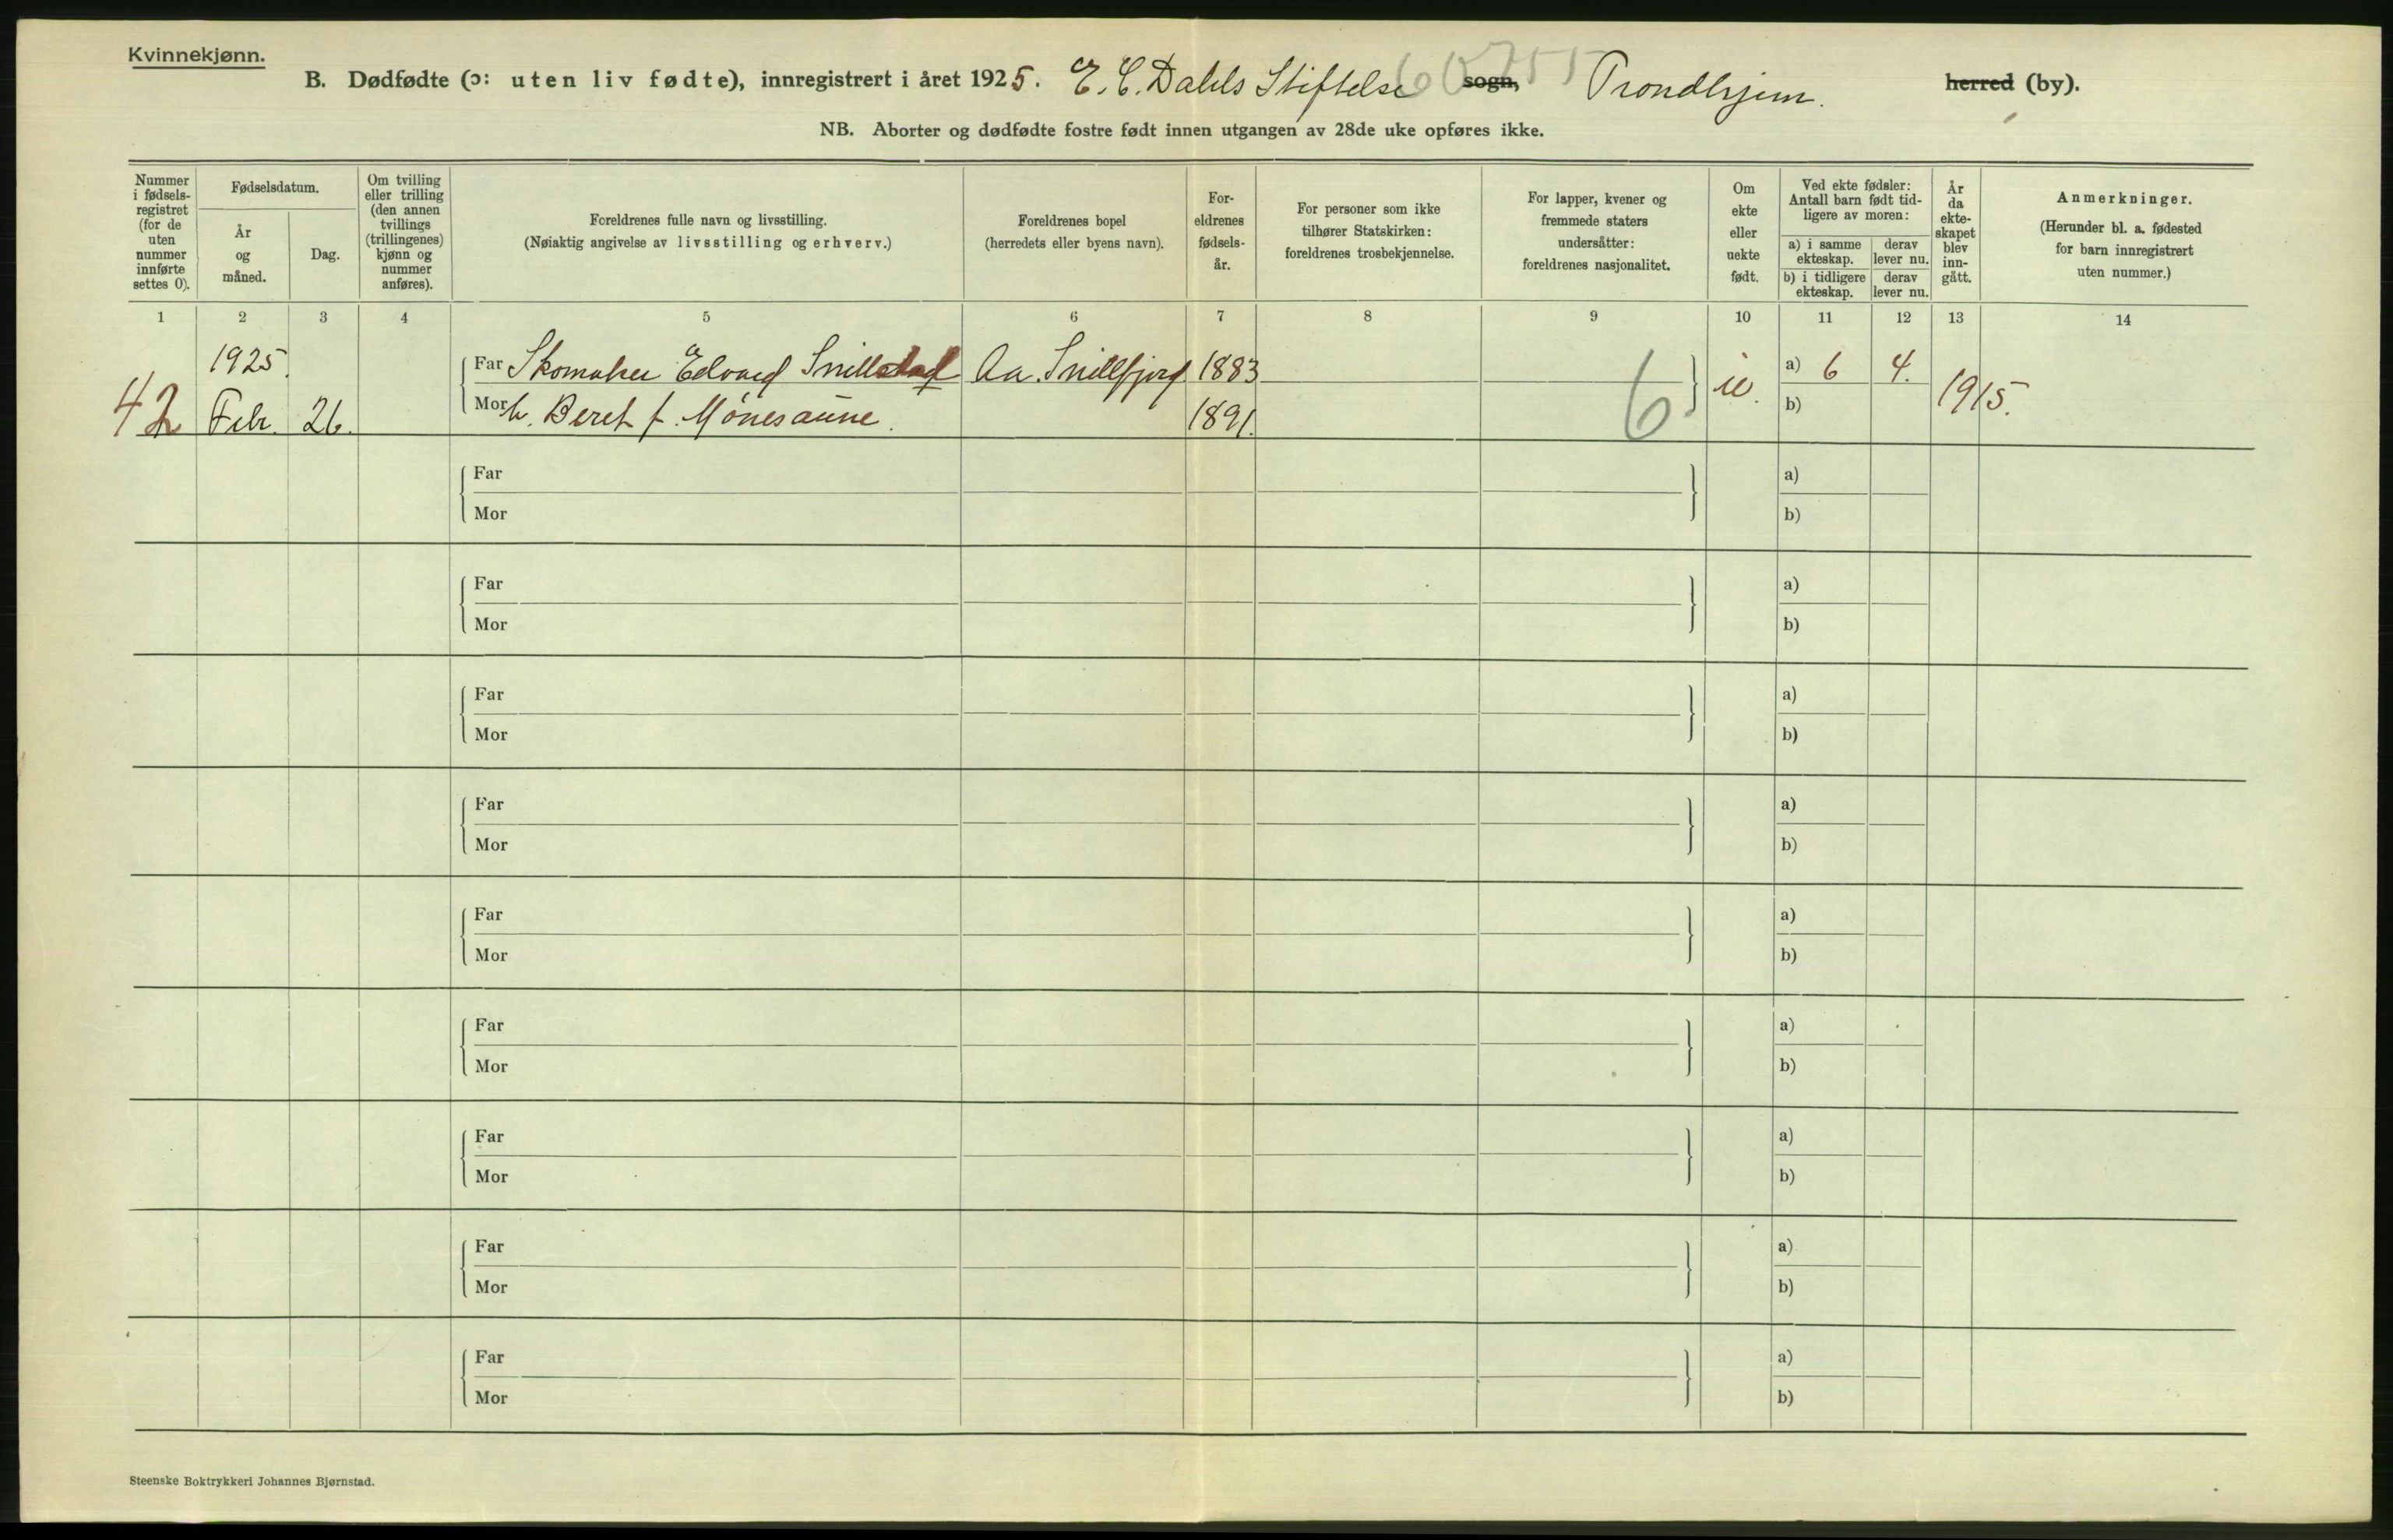 Kvinnekjønn.
B. Dødfødte (ɔ: uten liv fødte), innregistrert i året 1925. E. C. Dahls Stiftelse sogn, Trondhjem. herred (by).
NB. Aborter og dødfødte fostre født innen utgangen av 28de uke opføres ikke.
Nummer i fødsels-registret (for de uten nummer innførte settes 0).
Fødselsdatum.
År og måned.
Dag.
Om tvilling eller trilling (den annen tvillings (trillingenes) kjønn og nummer anføres).
Foreldrenes fulle navn og livsstilling.
(Nøiaktig angivelse av livsstilling og erhverv.)
Foreldrenes bopel
(herredets eller byens navn).
For-eldrenes fødsels-år.
For personer som ikke tilhører Statskirken: foreldrenes trosbekjennelse.
For lapper, kvener og fremmede staters undersåtter: foreldrenes nasjonalitet.
Om ekte eller uekte født.
Ved ekte fødsler: Antall barn født tid-ligere av moren:
a) i samme ekteskap.
derav lever nu.
b) i tidligere ekteskap.
derav lever nu.
År da ekte-skapet blev inn-gått.
Anmerkninger.
(Herunder bl. a. fødested for barn innregistrert uten nummer.)
1 2 3 4 5 6 7 8 9 10 11 12 13 14
1925.
Far Skomaker Edvard Snillstad Aa. Snillfjord 1883 a) 6 4.
42 Febr. 26. Mor h. Beret f. Mönesaune. 1891. 6 b) 1915.
Far a)
Mor b)
Far a)
Mor b)
Far a)
Mor b)
Far a)
Mor b)
Far a)
Mor b)
Far a)
Mor b)
Far a)
Mor b)
Far a)
Mor b)
Far a)
Mor b)
Steenske Boktrykkeri Johannes Bjørnstad.